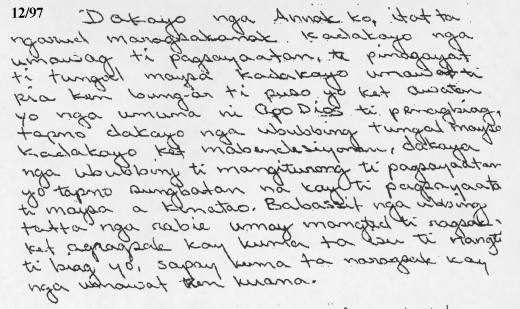 12/97
Dakayo nga Annak ko, ita ta
ngarud maragsakanak kadakayo nga
umawag ti pagsayaatan, ti pinagayat
ti tungal maysa kadakayo umawat ti
ria ken bungar ti puso yo ket awaten
yo nga umuna ni Apo Dios ti panagbiag,
tapno dakayo nga ububbing tungal maysa
kadakayo ket mabendesiyonan, dakayo
nga ububbing ti mangiturong ti pagsayaatan
yo tapno sungbatan na kay ti pagsayaata
ti maysa a kinatao. Babassit nga ubbing
tatta nga rabie umay mangted ti ragsak
ket agragsak kay kuma ta isu ti mangti
ti biag yo, sapay kuma ta naragsak kay
nga umawat ken kuana.